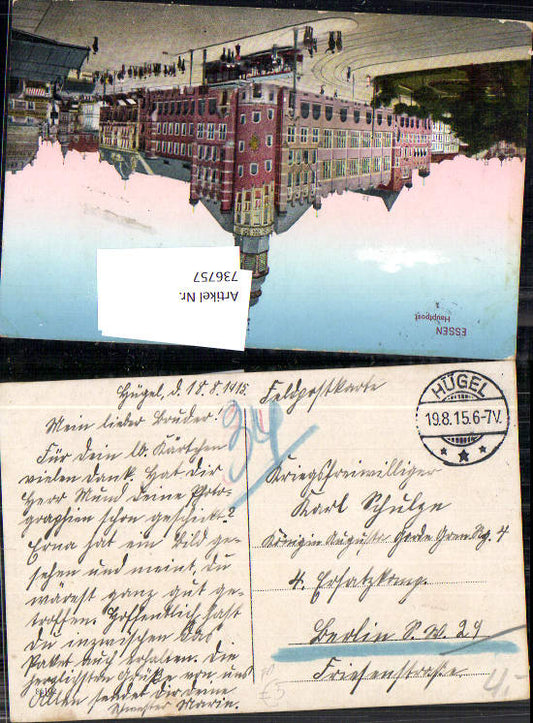 ESSEN
Hauptpost
Artikel Nr.
736757
Hügel, d. 18.8.1915.
Mein lieber Bruder!
Für Dein lb. Kärtchen
vielen Dank. Hat Dir
Herr Mund Deine Photo-
graphien schon geschickt?
Erna hat ein Bild ge-
sehen und meint, Du
wärest ganz gut ge-
troffen. Hoffentlich hast
Du inzwischen das
Paket auch erhalten. Die
herzlichsten Grüße von uns
Allen sendet Dir Deine
Schwester Marie.
Feldpostkarte
HÜGEL
19.8.15.6-7V.
Kriegsfreiwilliger
Karl Schulze
Königin Augusta Garde Gren. Rg. 4
4. Ersatzkomp.
Berlin S.W. 29
Friesenstraße
4,-